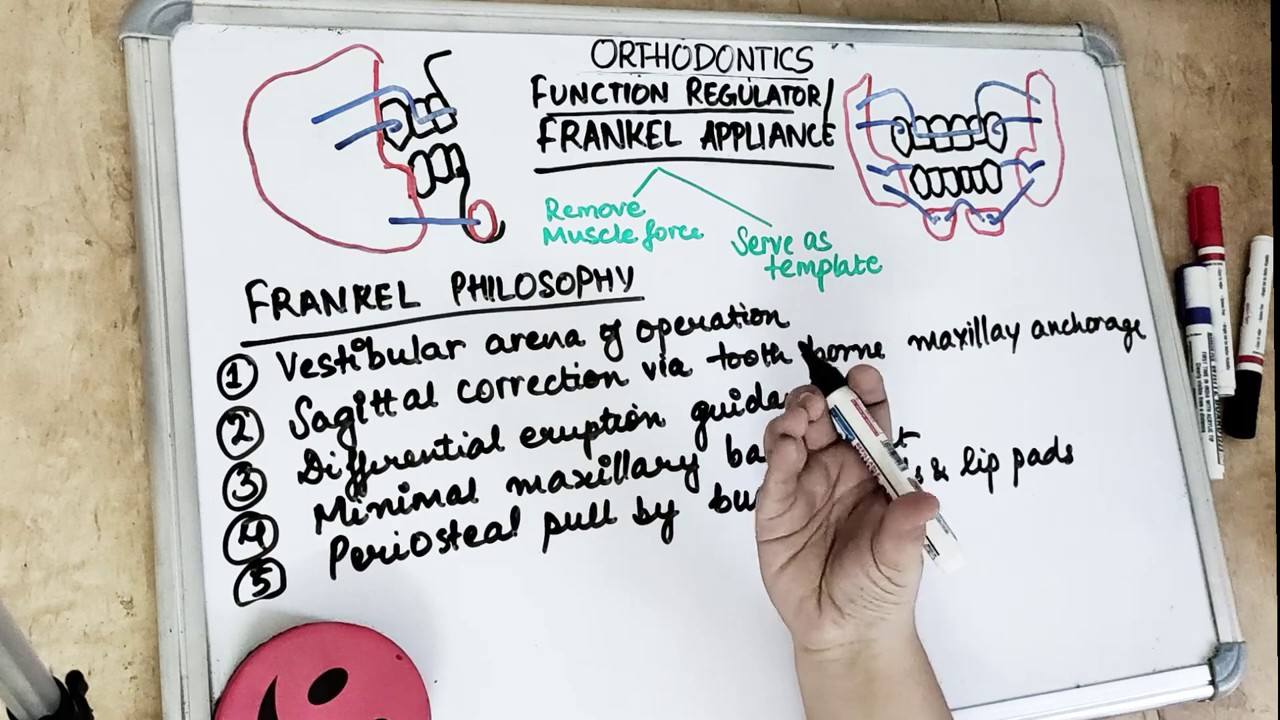 ORTHODONTICS
FUNCTION REGULATOR/
FRANKEL APPLIANCE
Remove
Muscle force
Serve as
template
FRANKEL PHILOSOPHY
1 Vestibular arena of operation
2 Sagittal correction via tooth borne maxillay anchorage
3 Differential eruption
4 Minimal maxillary
5 Periosteal pull by & lip pads